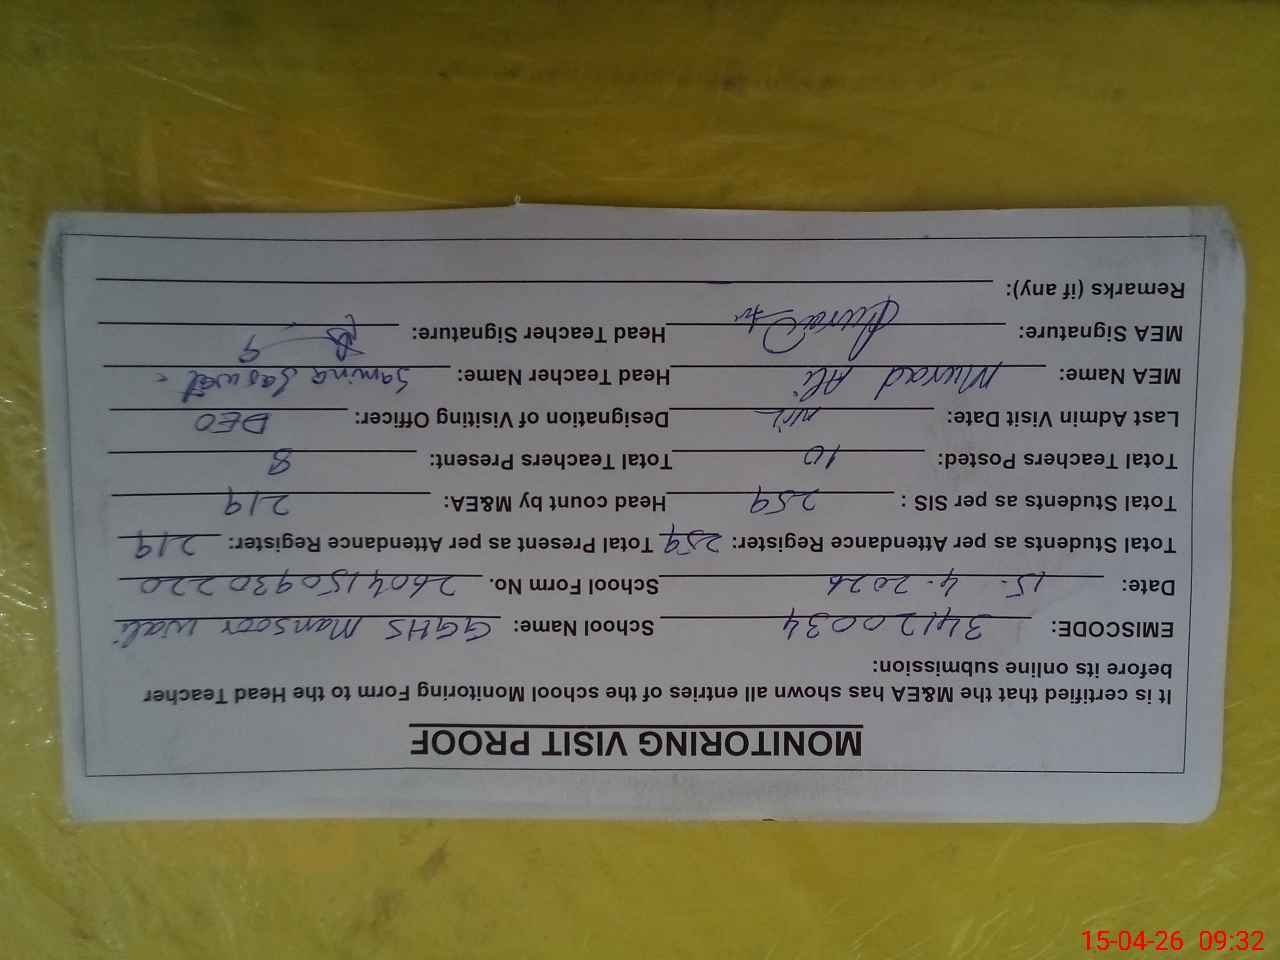 MONITORING VISIT PROOF
It is certified that the M&EA has shown all entries of the school Monitoring Form to the Head Teacher
before its online submission:
EMISCODE: 34120034 School Name: GGHS Mansoor Wali
Date: 15-4-2026 School Form No. 2604150930220
Total Students as per Attendance Register: 259 Total Present as per Attendance Register: 219
Total Students as per SIS : 259 Head count by M&EA: 219
Total Teachers Posted: 10 Total Teachers Present: 8
Last Admin Visit Date: Nil Designation of Visiting Officer: DEO
MEA Name: Murad Ali Head Teacher Name: Samina
MEA Signature: Head Teacher Signature:
Remarks (if any):
15-04-26 09:32